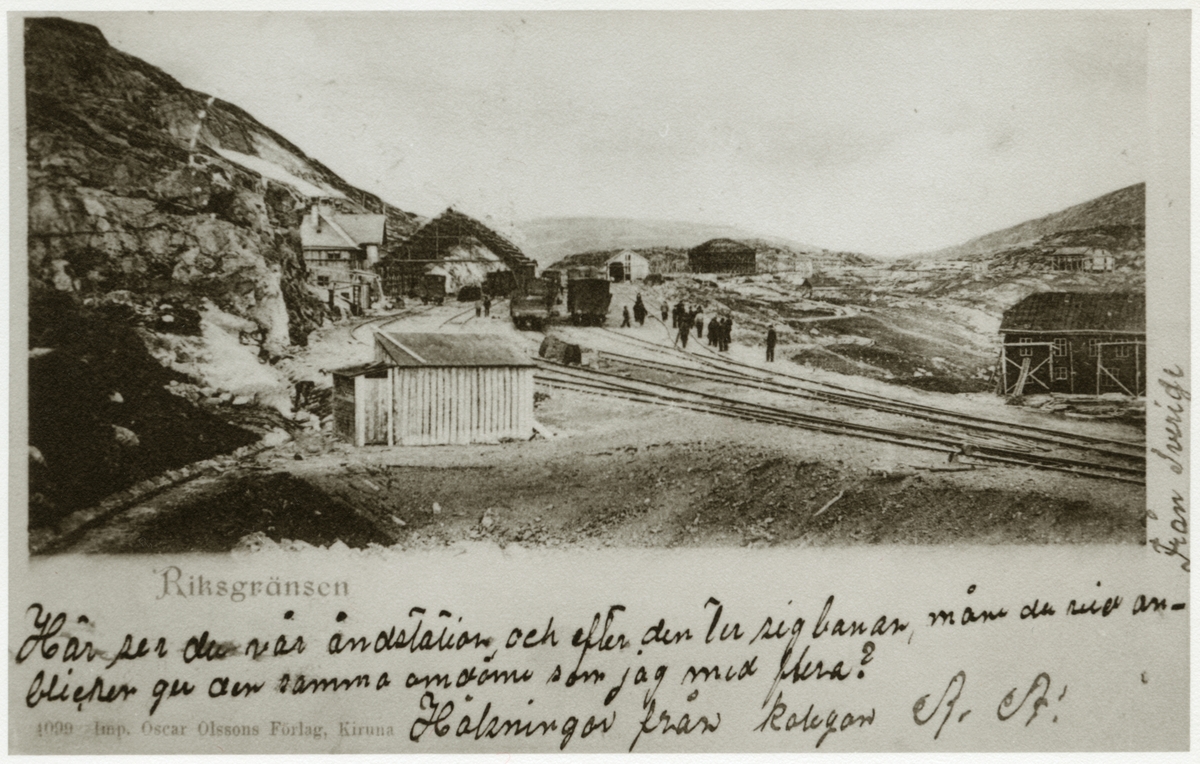 Riksgränsen
Här ser du vår ändstation, och efter den ter sig banan, måne du vid an-
blicken ger den samma omdöme som jag med flera?
Hälsningar från kolegan A. A!
4099 Imp. Oscar Olssons Förlag, Kiruna
Från Sverige